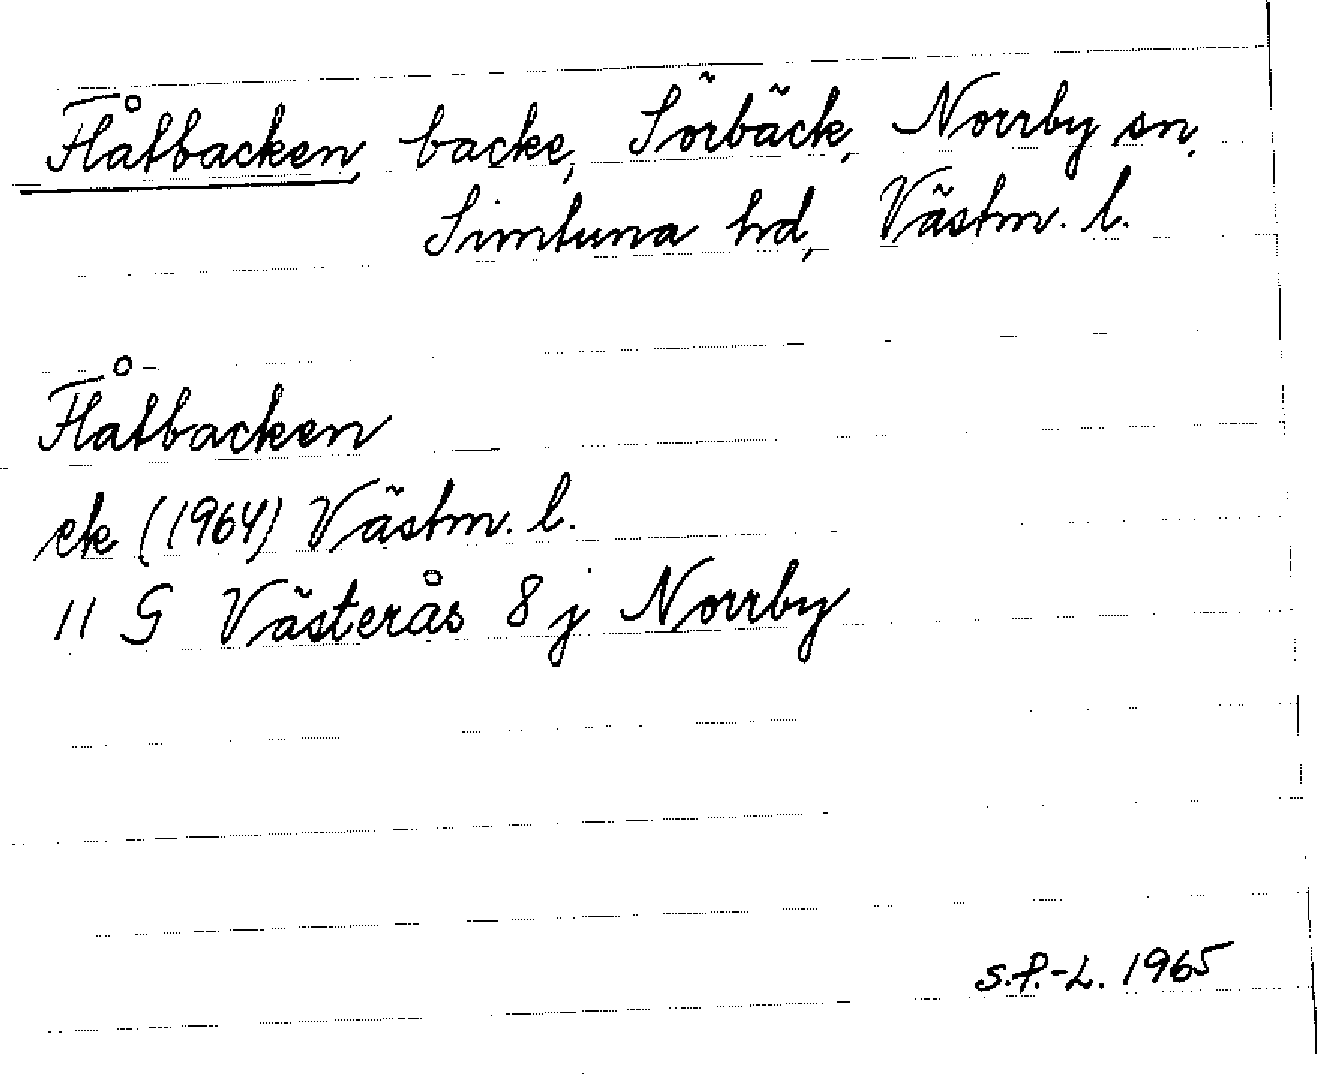 Flåtbacken, backe, Sörbäck, Norrby sn,
Simtuna hd, Västm. l.
Flåtbacken
ek (1964) Västm. l.
11 G Västerås 8 j Norrby
S.P.-L. 1965